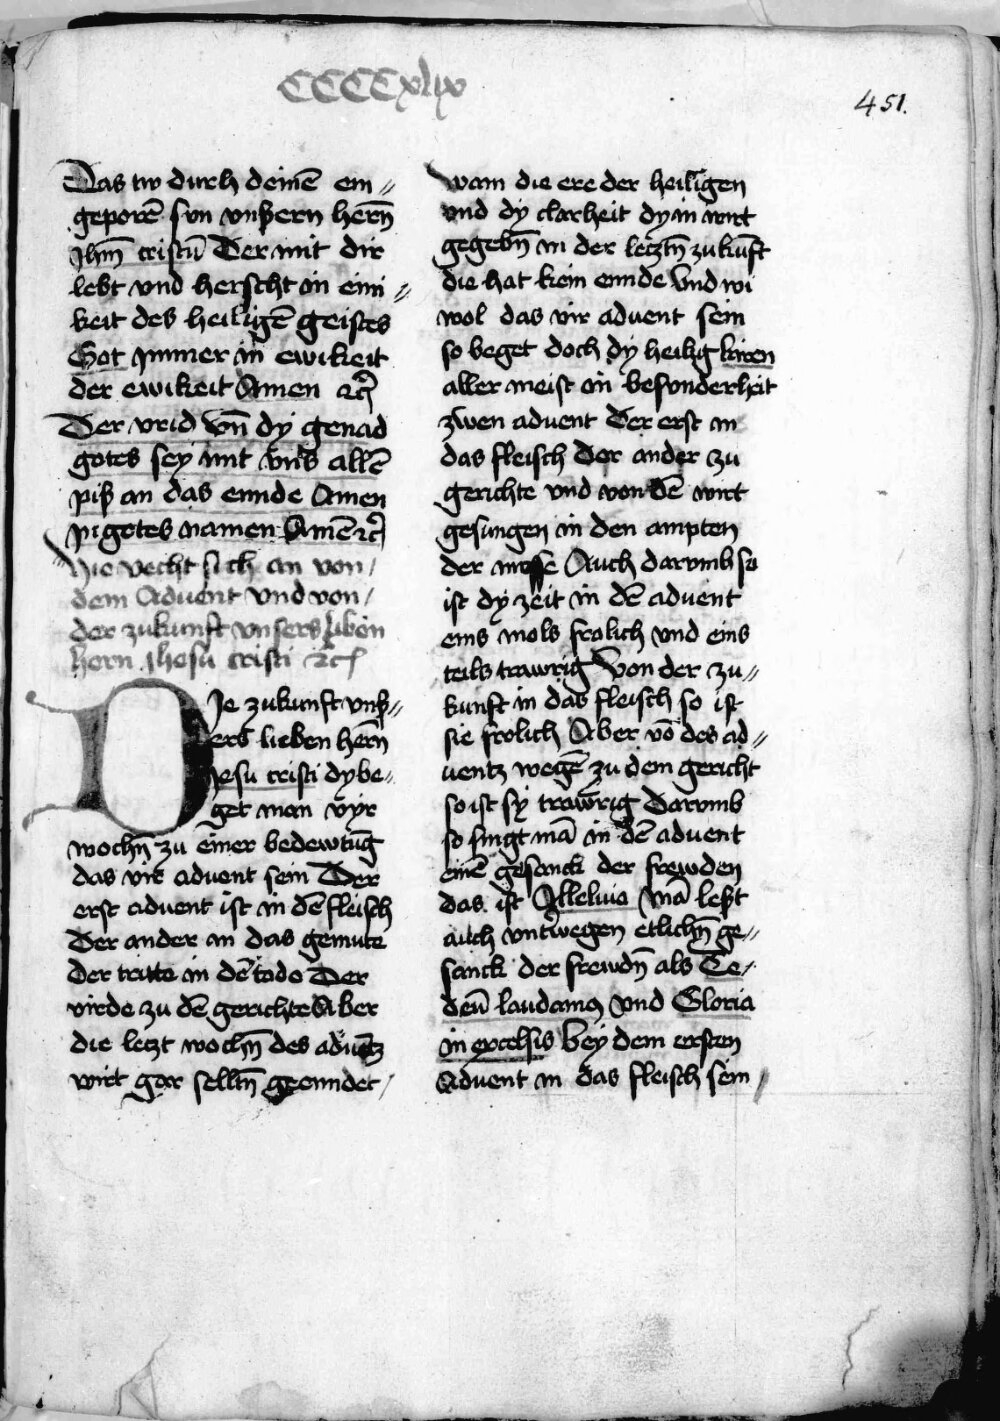 CCCCxlix
451.
Das tw durch deinē ein⸗
geporē sun vnßern herñ
Jhm̄ cristū Der mit dir
lebt vnd herscht in eini⸗
keit des heiligē geistes
Got ymmer in ewikeit
der ewikeit Amen ⁊c̄
Der vrid vn̄ dy genad
gotes sey mit vn̄s allē
piß an das ennde Amen
In gotes namen Amē ⁊c̄
Hie vecht sich an von
dem Advent vnd von
der zukunft vnsers liben
hern Jhesu cristi ⁊c
DJe zukunft vnß⸗
ers lieben herñ
Jesu cristi dy be⸗
get man vÿr
wochñ zu einer bedewtūg
das vir advent sein Der
erst advent ist in dē fleisch
Der ander in das gemute
Der tritte in dē tode Der
virde zu dē gerichte Aber
die letzt wochñ des advētz
wirt gar selltñ geenndet
wann die ere der heiligen
vnd dy clarheit dy in wirt
gegebñ in der letztñ zukūft
die hat kein ennde Vnd wi
wol das vir advent sein
so beget doch dy heilig kircen
aller meist in besunderheit
zwen advent Der erst in
das fleisch der ander zu
gerichte vnd von dē wirt
gesungen in den ampten
der messe Auch darvmb so
ist dy zeit in dē advent
eins mols frolich vnd eins
teils trawrig Von der zu⸗
kunft in das fleisch so ist
sie frolich Aber vō des ad⸗
ventz wegē zu dem gericht
so ist sy trawrig Darvmb
so singt mā in dē advent
einē gesanck der frewden
das ist Alleluia mā leßt
auch vntwegen etlichñ ge⸗
sanck der frewdñ als Te⸗
deū laudamꝯ vnd Gloria
in excelsis bey dem ersten
Advent in das fleisch sein